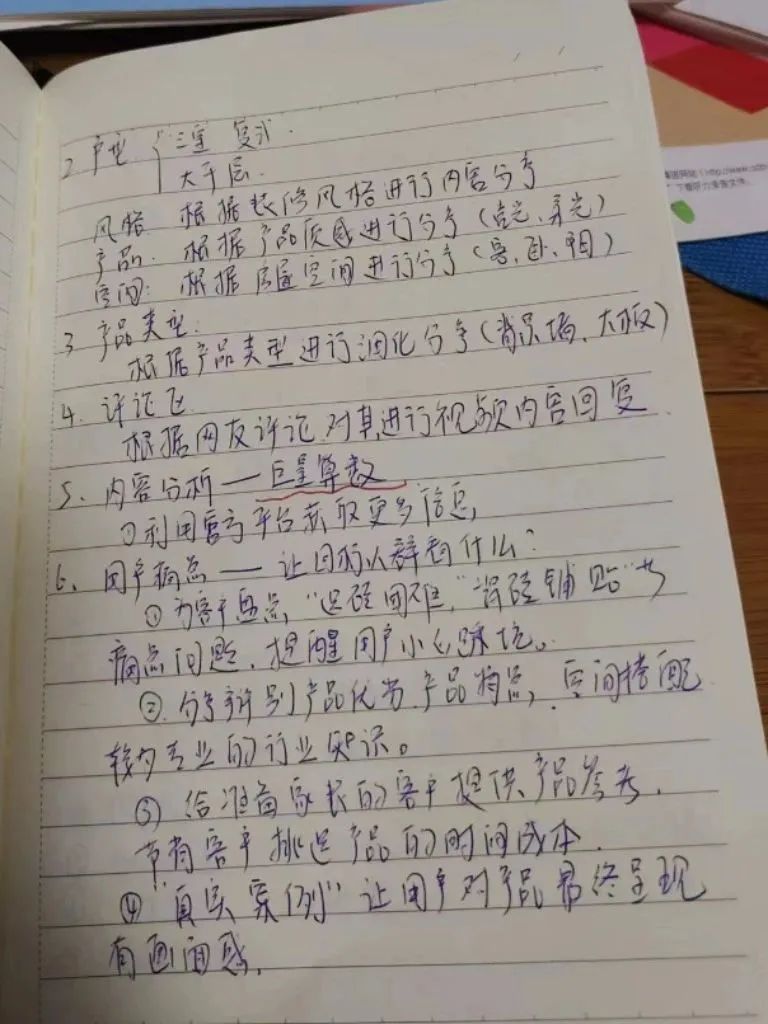 2 户型 { 三室 复式.
大平层.
风格 根据装修风格进行内容分享
产品: 根据产品质感进行分享(亮光、柔光)
空间: 根据居室空间进行分享(客、卧、阳)
3 产品类型:
根据产品类型进行细化分享(背景墙、大板)
4. 评论区
根据网友评论对其进行视频内容回复
5、内容分析 — 巨量算数
①利用官方平台获取更多信息,
6、用户痛点 — 让目标人群看什么?
① 为客户盘点,“选砖困难,”瓷砖铺贴“为
痛点问题,提醒用户小心踩坑。
②. 分享辨别产品优劣,产品特点,空间搭配
较为专业的行业知识。
③ 给准备家装的客户提供产品参考,
节省客户挑选产品的时间成本.
④ “真实案例” 让用户对产品最终呈现
有画面感,
下载听力录音文件。